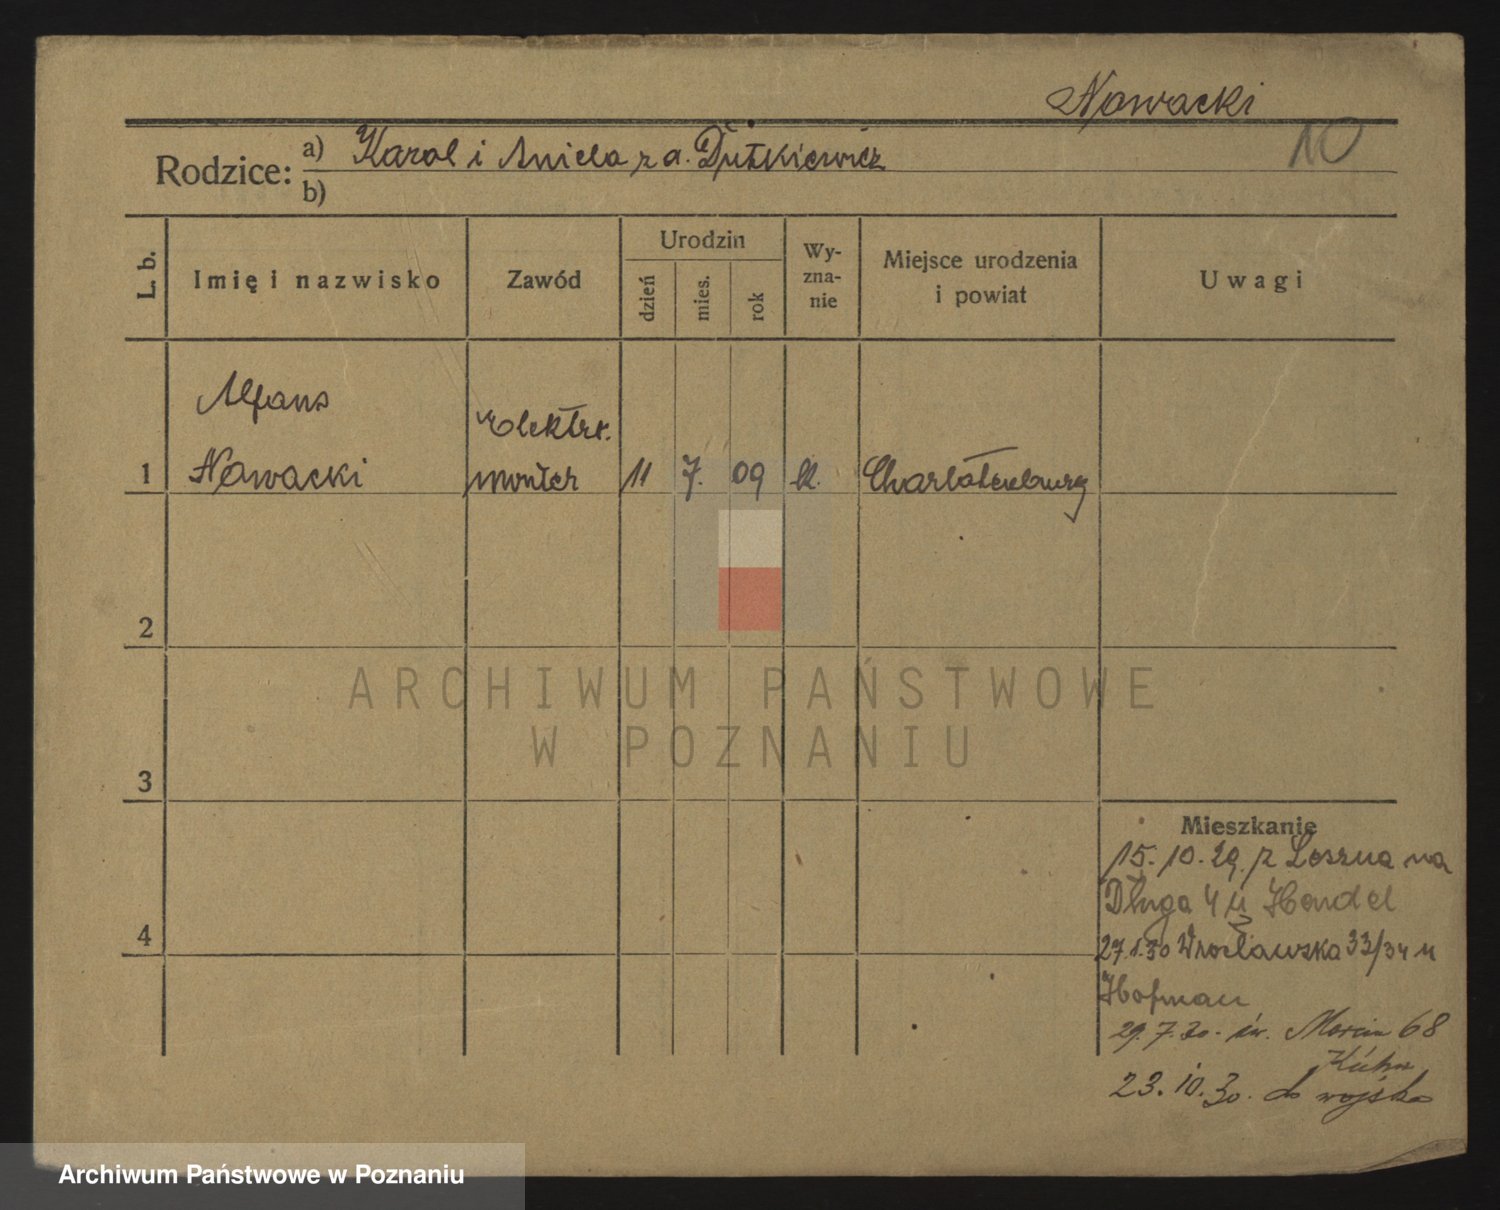 Nowacki
10
Rodzice: a) Karol i Aniela z d. Dutkiewicz
b)
L. b.
Imię i nazwisko
Zawód
Urodzin
dzień
mies.
rok
Wy-
zna-
nie
Miejsce urodzenia
i powiat
Uwagi
Alfons
Elektr.
1 Nowacki monter 11 7. 09 kt. Charlottenburg
2
3
4
ARCHIWUM PAŃSTWOWE
W POZNANIU
Mieszkanie
15.10.29. z Leszna na
Długa 4 u Handel
27.1.30 Wrocławska 33/34 u
Hofman
29.7.30. św. Marcin 68
Kühn
23.10.30. do wojska
Archiwum Państwowe w Poznaniu